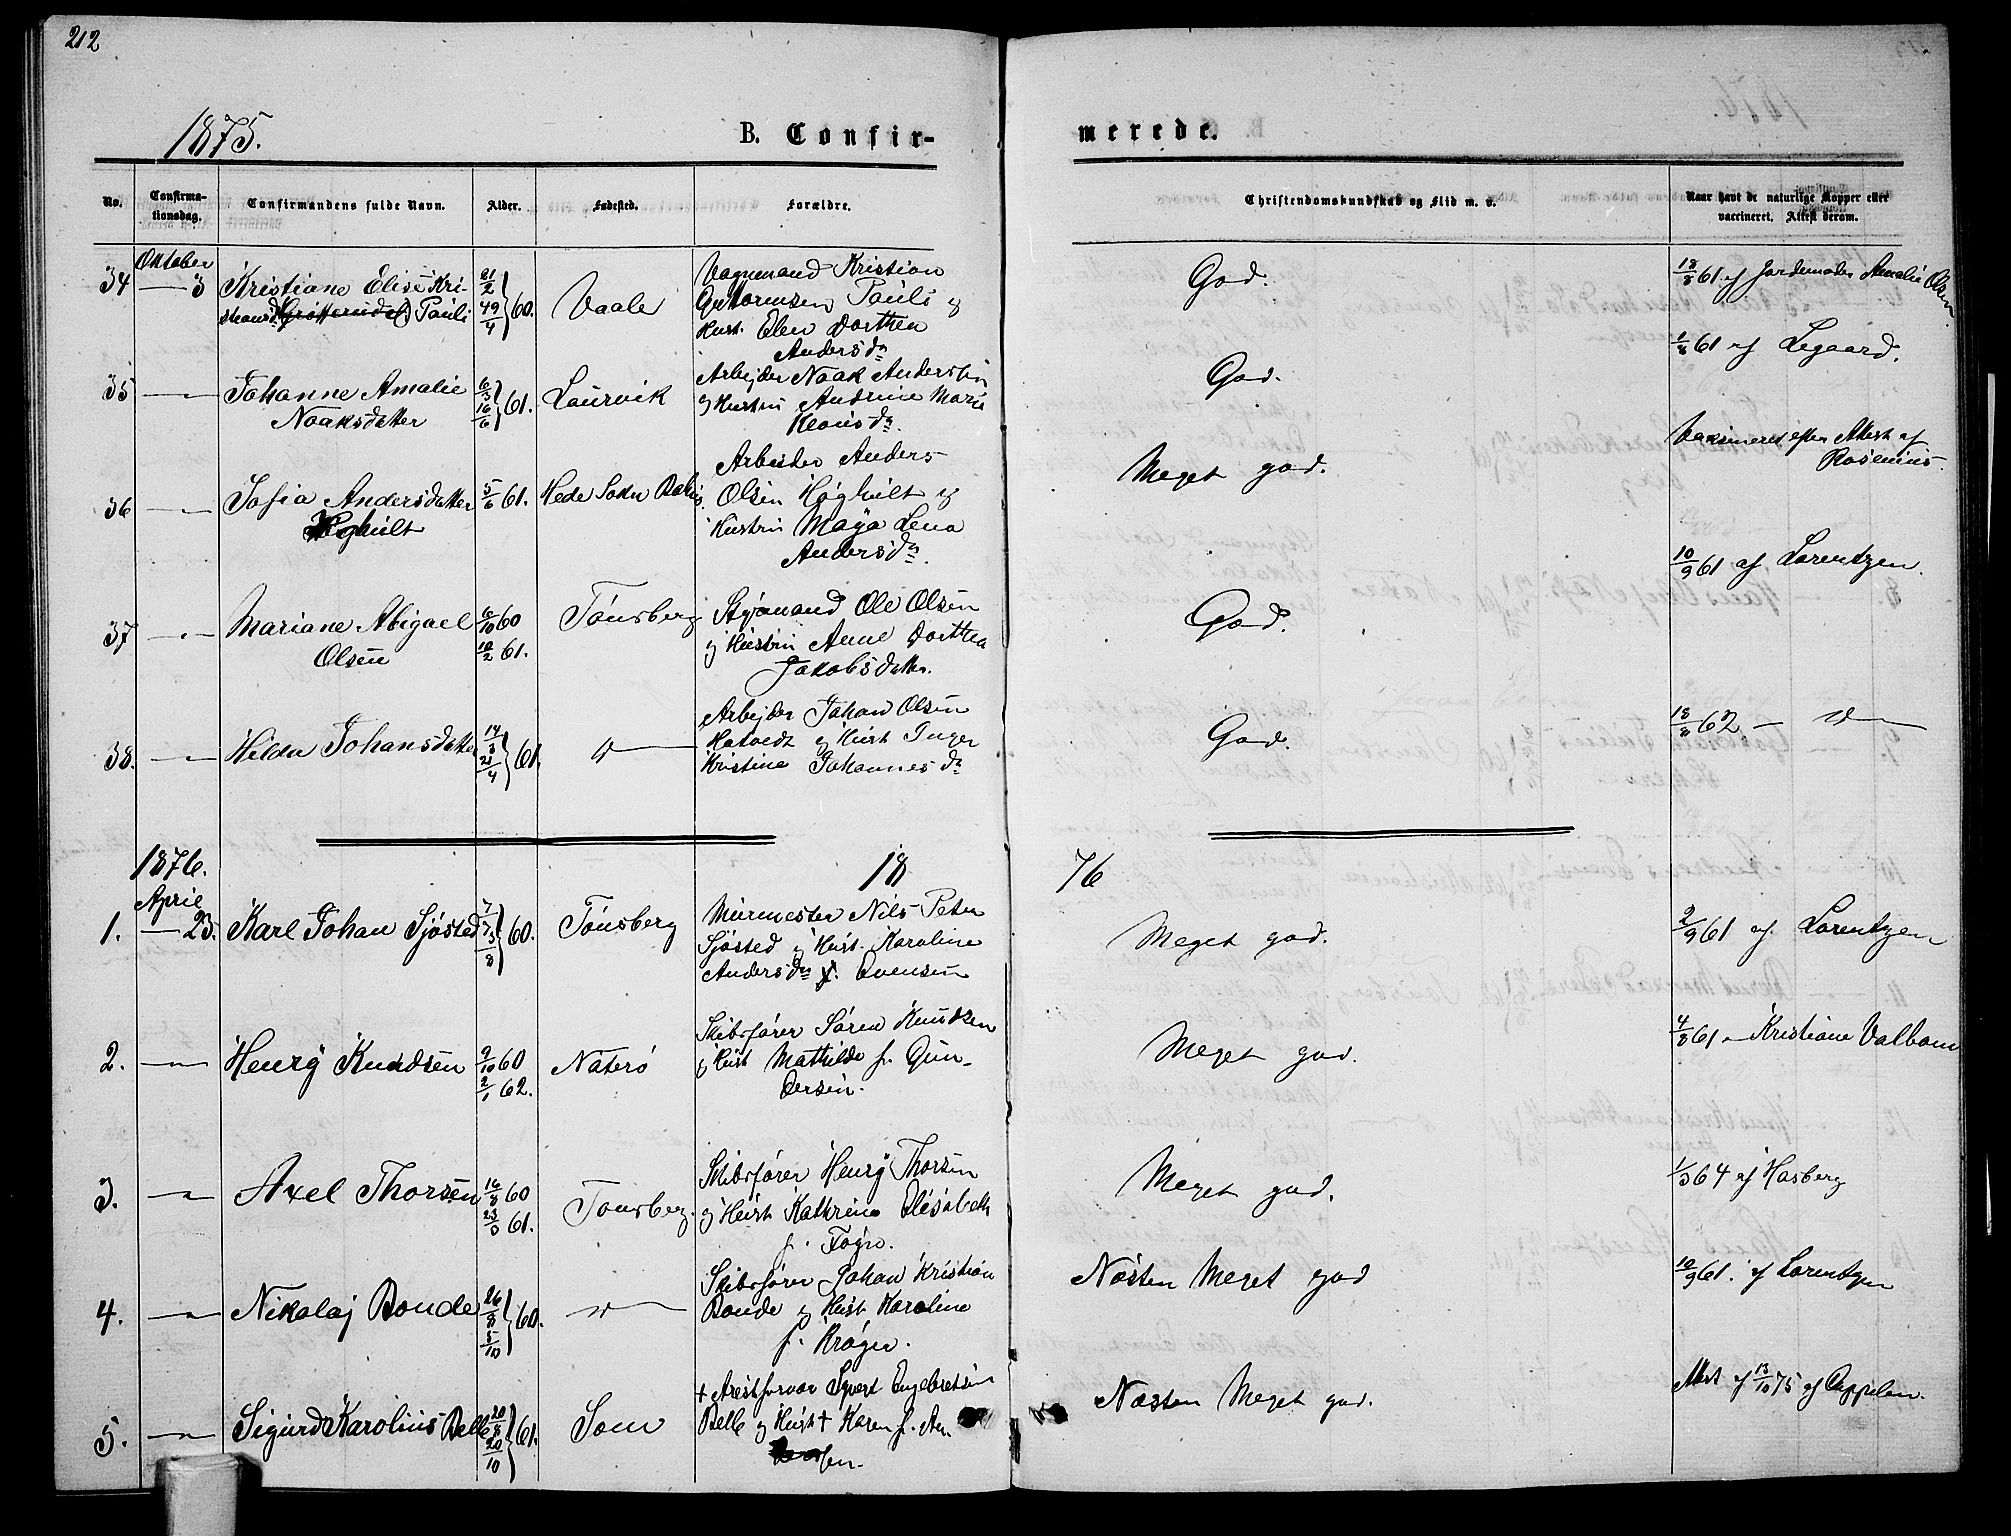 212
1875.
B. Confir-
merede.
No.
Confirma-
tionsdag.
Confirmandens fulde Navn.
Alder.
Fødested.
Forældre.
Christendomskundskab og Flid m. v.
Naar havt de naturlige Kopper eller
vaccineret. Attest derom.
Oktober
34 — 3
Kristiane Elise Kri-
stiansd. Pauli
21/2 49/4 60.
Vaale
Vognmand Kristian
Guttormsen Pauli og
Hust. Elen Dorthea
Andersdr
God.
18/8 61 af Jordemoder Amalie Olsen
35 —"—
Johanne Amalie
Noaksdatter
6/3 16/6 61.
Laurvik
Arbejder Noak Andersen
og Hustru Andrine Marie
God.
1/8 61 af Legaard.
36 —"—
Sofia Andersdatter
Høghült
5/6 61.
Hede Sokn
Arbeider Anders
Olsen Høghült og
Hustru Maya Lena
Andersdr.
Meget god.
Vaksineret efter Attest af
Rosenius.
37 —"—
Mariane Abigael
Olsen
6/10 60
10/2 61.
Tönsberg
Styrmand Ole Olsen
og Hustru Anne Dorthea
Jakobsdatter.
God.
10/9 61 af Lorentzen.
38. —"—
Hilda Johansdatter
14/3 21/4 61.
—"—
Arbejder Johan Olsen
og Hust Inger
Kristine Johannesdr
God.
18/8 62 — "—
1876.
18
76
April
1. — 23.
Karl Johan Sjøsted
7/7 3/8 60.
Tönsberg
Murmester Nils Peter
Sjøsted og Hust. Karoline
Andersdr f. Evensen
Meget god.
2/9 61 af. Lorentzen
2. —"—
Henry Knudsen
9/10 60
2/1 62.
Nøterö
Skibsfører Søren Knudsen
og Hust Mathilde f. Gun-
dersen.
Meget god.
4/8 61 — Kristiane Valbom
3. —"—
Axel Thorsen
16/8 60
23/3 61.
Tønsberg.
Skibsfører Henry Thorsen
og Hust Kathrine Elisabeth
f. Føyn.
Meget god.
1/3 64 af Hasberg
4. —"—
Nikolaj Bonde
26/8 5/10 60.
—"—
Skibsfører Johan Kristian
Bonde og Hust Karoline
f. Krøger.
Næsten Meget god
10/9 61. af Lorentzen
5. —"—
Sigurd Karolius Belle
20/8 20/10 61.
Sem
+ Arestforvar Syvert Engebretsen
Belle og Hust + Karen f. An-
sen.
Næsten Meget god.
Attest af 13/10 75 af Cappelen.